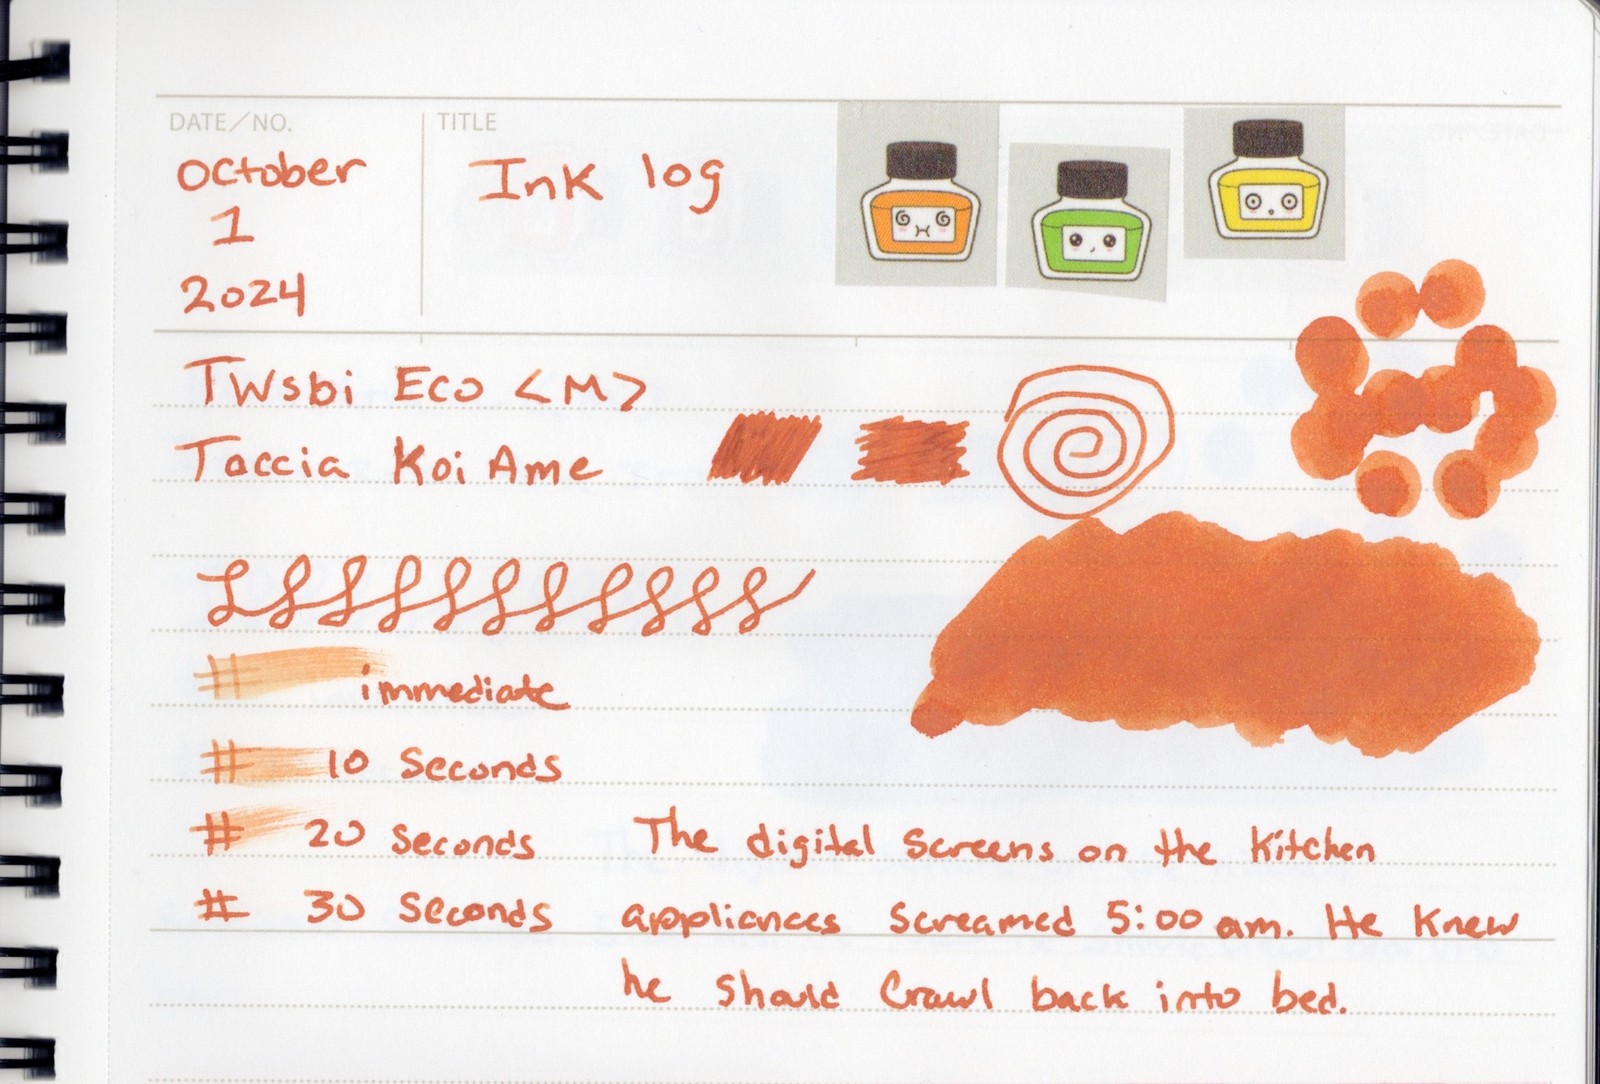 DATE/NO.
TITLE
October
1
2024
Ink log
TWsbi Eco <M>
Taccia Koi Ame
# immediate
# 10 Seconds
# 20 seconds
# 30 Seconds
The digital screens on the kitchen
appliances screamed 5:00 am. He knew
he should crawl back into bed.